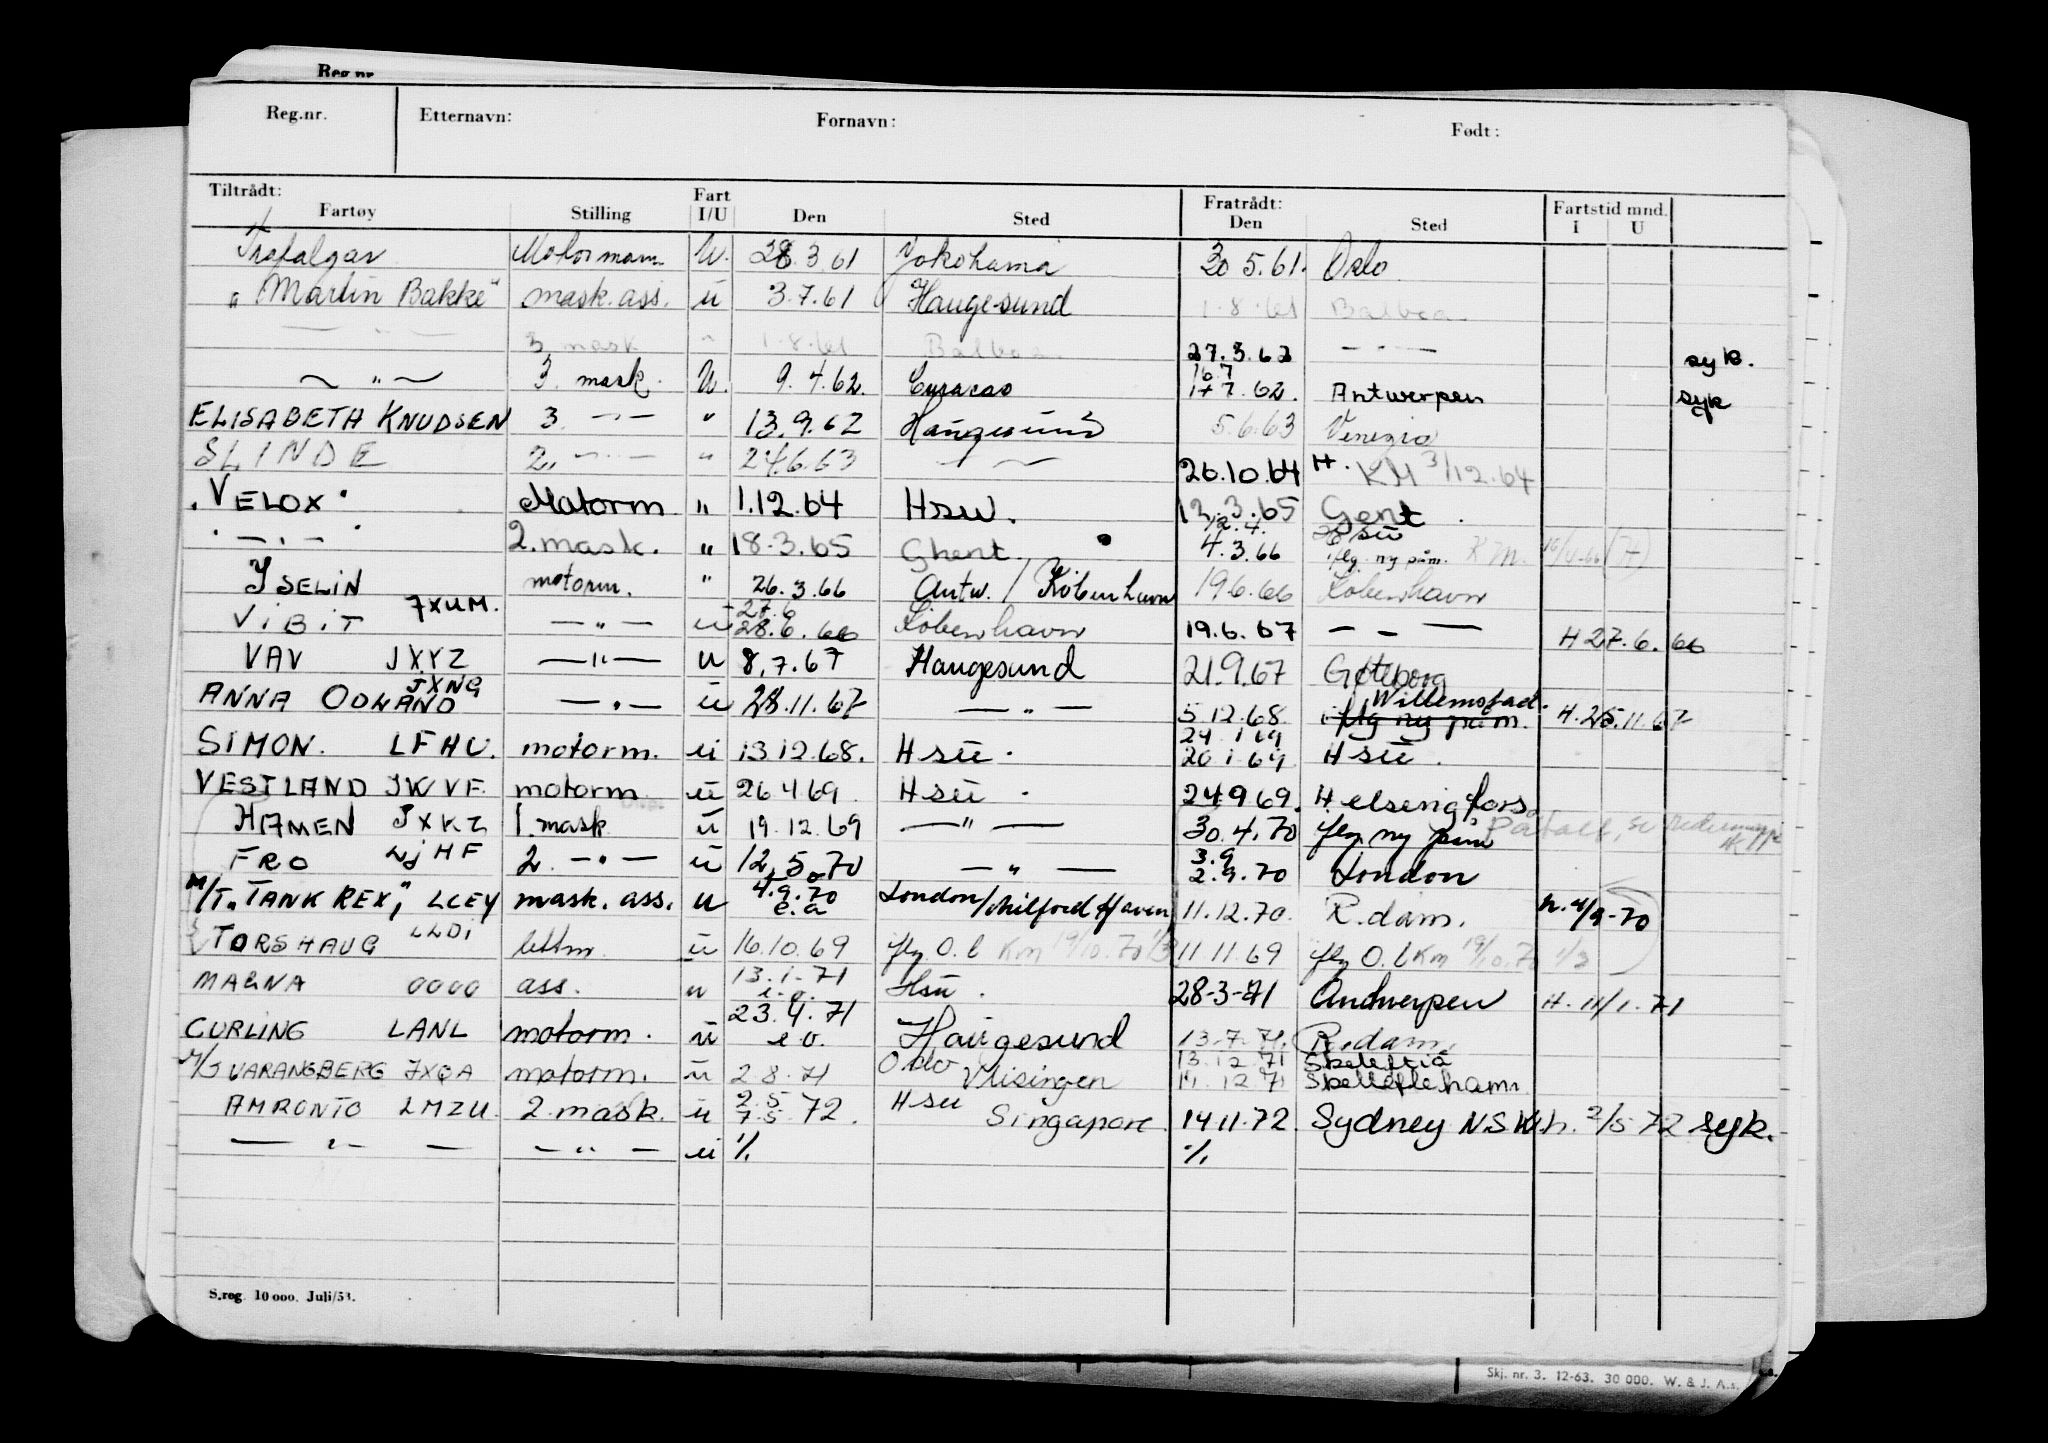 Reg.nr.
Reg.nr. Etternavn: Fornavn: Født:
Tiltrådt: Fart Fratrådt: Fartstid mnd.
Fartøy Stilling I/U Den Sted Den Sted I U
Trafalgar Motormann U. 28.3 61 Yokohama 30 5.61. Oslo
"Martin Bakke" mask.ass. ü 3.7.61 Haugesund 1.8.61 Balboa
— " — 3 mask " 1.8.61 Balboa 27.3.62 — " — syk.
— " — 3. mask. U. 9.4.62. Curacao 16.7 17 7.62. Antwerpen syk
ELISABETH KNUDSEN 3. — " — " 13.9.62 Haugesund 5.6.63 Venezia
SLINDE 2. — " — " 24.6.63 — " — 26.10.64 H. KM 3/12.64
"VELOX" Motorm " 1.12.64 Hsu. 12.3.65 Gent.
" — " — " 2.mask. " 18.3.65 Ghent. 12.4. 4.3.66 Hsü iflg. ny påm. KM. (H)
YSELIN motorm. " 26.3.66 Antw. / Köbenhavn 19.6.66 Köbenhavn
VIBIT JXUM. — " — ü 27.6 28.6.66 Köbenhavn 19.6.67 — " — H 27.6.66
VAV JXYZ — " — u 8.7.67 Haugesund 21.9.67 Gøteborg
ANNA ODLAND JXNG — " — ü 28.11.67 — " — 5 12.68. iflg ny påm. Willemstad. H.25.11.67
SIMON. LFHU. motorm. ü 13 12.68. Hsü. 24.1 69 20 1.69 Hsü.
VESTLAND JWVF. motorm ü 26 4 69. Hsü. 24 9 69. Helsingfors
HAMEN JXKZ 1.mask ü 19.12.69 — " — 30.4.70 iflg ny påm
FRO LJHF 2. — " — ü 12.5.70 — " — 3.9 2.9.70 London
M/T "TANK REX", LCEY mask. ass. u 4.9.70 e.a London/Milford Haven 11.12.70. R.dam. h. 4/9-70
TORSHAUG LLDI lettm. ü 16.10.69 iflg O.l KM 19/10.70 1/3 11 11.69 iflg O.l KM 19/10.70 1/3
MAGNA OOOO ass. u 13.1.71 e.o. Hsü. 28-3-71 Antwerpen H. 11/1.71
CURLING LANL motorm. ü 23.4.71 e.o. Haugesund 13.7.71. R.dam.
M/S VARANGBERG JXQA motorm. ü 2.8.71 Oslo Vlisingen 13.12.71 Skeleftiå 14.12.71 Skellefteham
AMRONTO LMZU. 2.mask. ü 2.5 7.5.72. Hsu Singapore. 14.11.72. Sydney N.S.W. h. 2/5 72 syk.
— " — — " — ü 1/1 1/1
S.reg. 10 000. Juli/53.
Skj. nr. 3. 12-63. 30 000. W. & J. A.s.